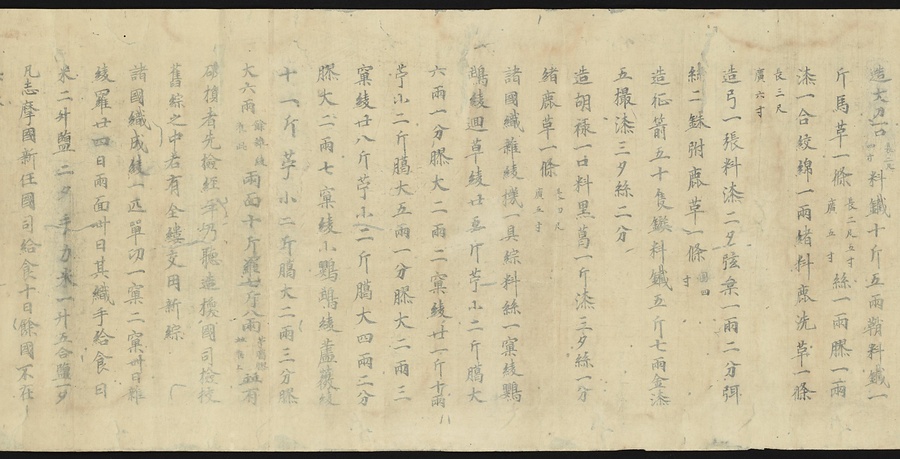 造大刀一口長二尺四寸料鐵十斤五兩鞘料鐵一
斤馬草一條長二尺五寸廣五寸絲一兩膠一兩
漆一合絞綿一兩緒料鹿洗草一條
長三尺廣六寸
造弓一張料漆二夕弦枲一兩二分弭
絲二銖附鹿草一條圓四寸
造征箭五十隻鏃料鐵五斤七兩金漆
五撮漆三夕絲二分
造胡祿一口料黑葛一斤漆三夕絲一分
緒鹿草一條長二尺廣五寸
諸國織雜綾機一具綜料絲一窠綾鸚
鵡綾廻草綾廿五斤苧小二斤臈大
六兩一分膠大二兩二窠綾廿一斤十兩
苧小二斤臈大五兩一分膠大二兩三
窠綾廿八斤苧小二斤臈大四兩二分
膠大二兩七窠綾小鸚鵡綾薔薇綾
十一斤苧小二斤臈大二兩三分膠
大六兩餘雜綾准此兩面十斤羅七斤八兩
者先檢經年仍聽造換國司檢校
舊綜之中若有全縷交用新綜
諸國織成綾一匹單功一窠二窠卅日雜
綾羅廿四日兩面卅日其織手給食日
米二升鹽二夕手力米一升五合鹽一夕
凡志摩國新任國司給食十日條國不在